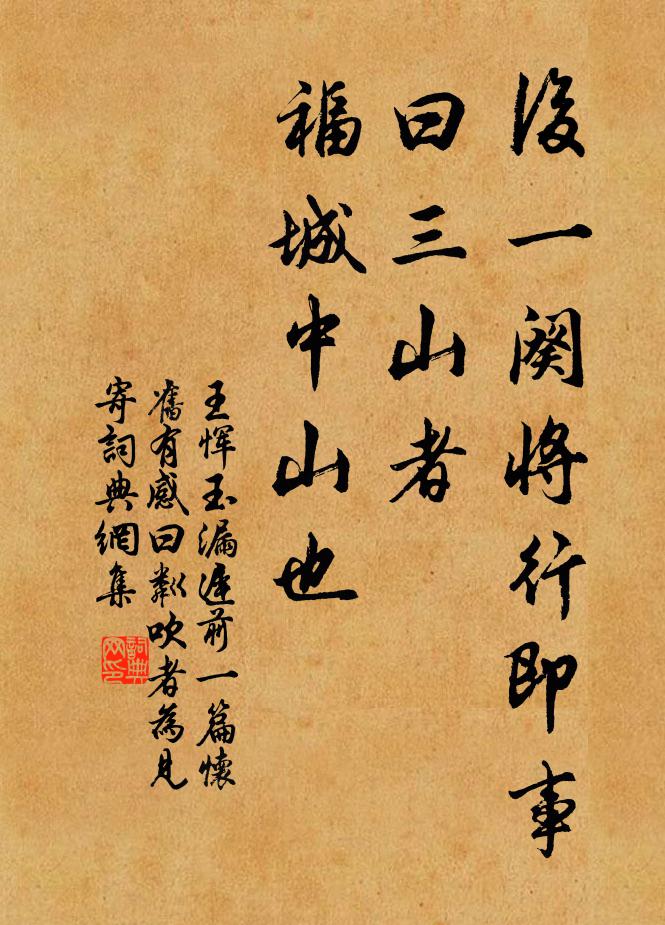 後一闋將行即事
曰三山者
福城中山也
王惲玉漏遲前一篇懷
舊有感曰粼吹者為見
寄詞典網集
詞典网印